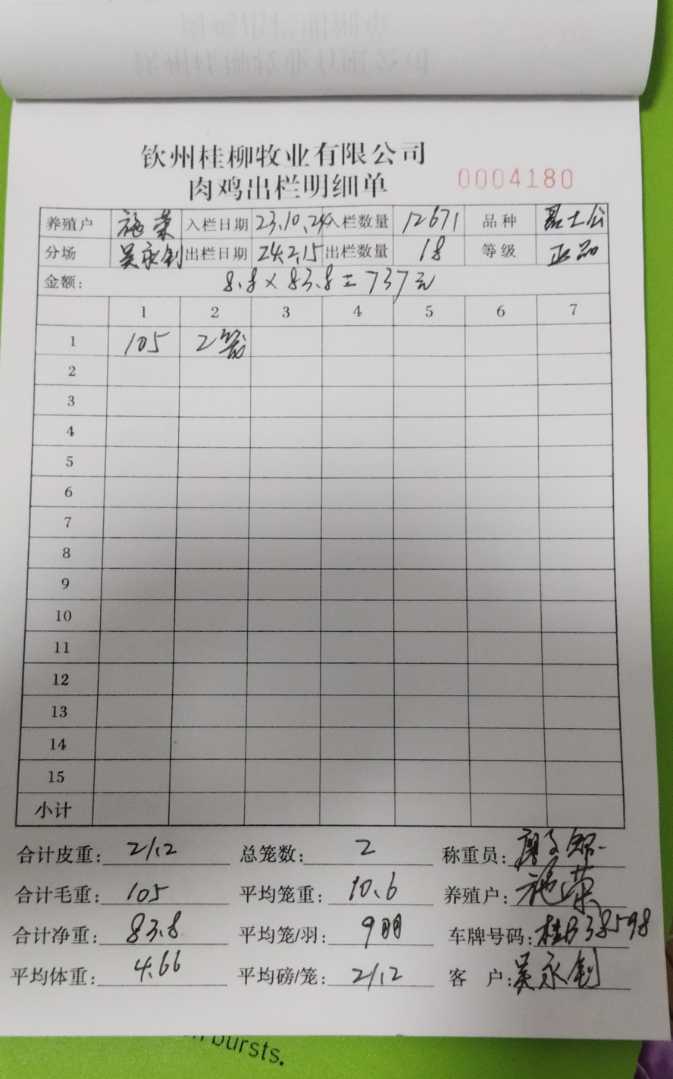 钦州桂柳牧业有限公司
肉鸡出栏明细单 0004180
养殖户 施荣 入栏日期 23.10.24 入栏数量 12671 品种 土公
分场 吴永钊 出栏日期 24.2.15 出栏数量 18 等级 正品
金额: 8.8×83.8=737元
1 2 3 4 5 6 7
1 105 2笼
2
3
4
5
6
7
8
9
10
11
12
13
14
15
小计
合计皮重: 21.2 总笼数: 2 称重员:
合计毛重: 105 平均笼重: 10.6 养殖户: 施荣
合计净重: 83.8 平均笼/羽: 9羽 车牌号码: 桂B38598
平均体重: 4.66 平均磅/笼: 21.2 客 户: 吴永钊
bursts.